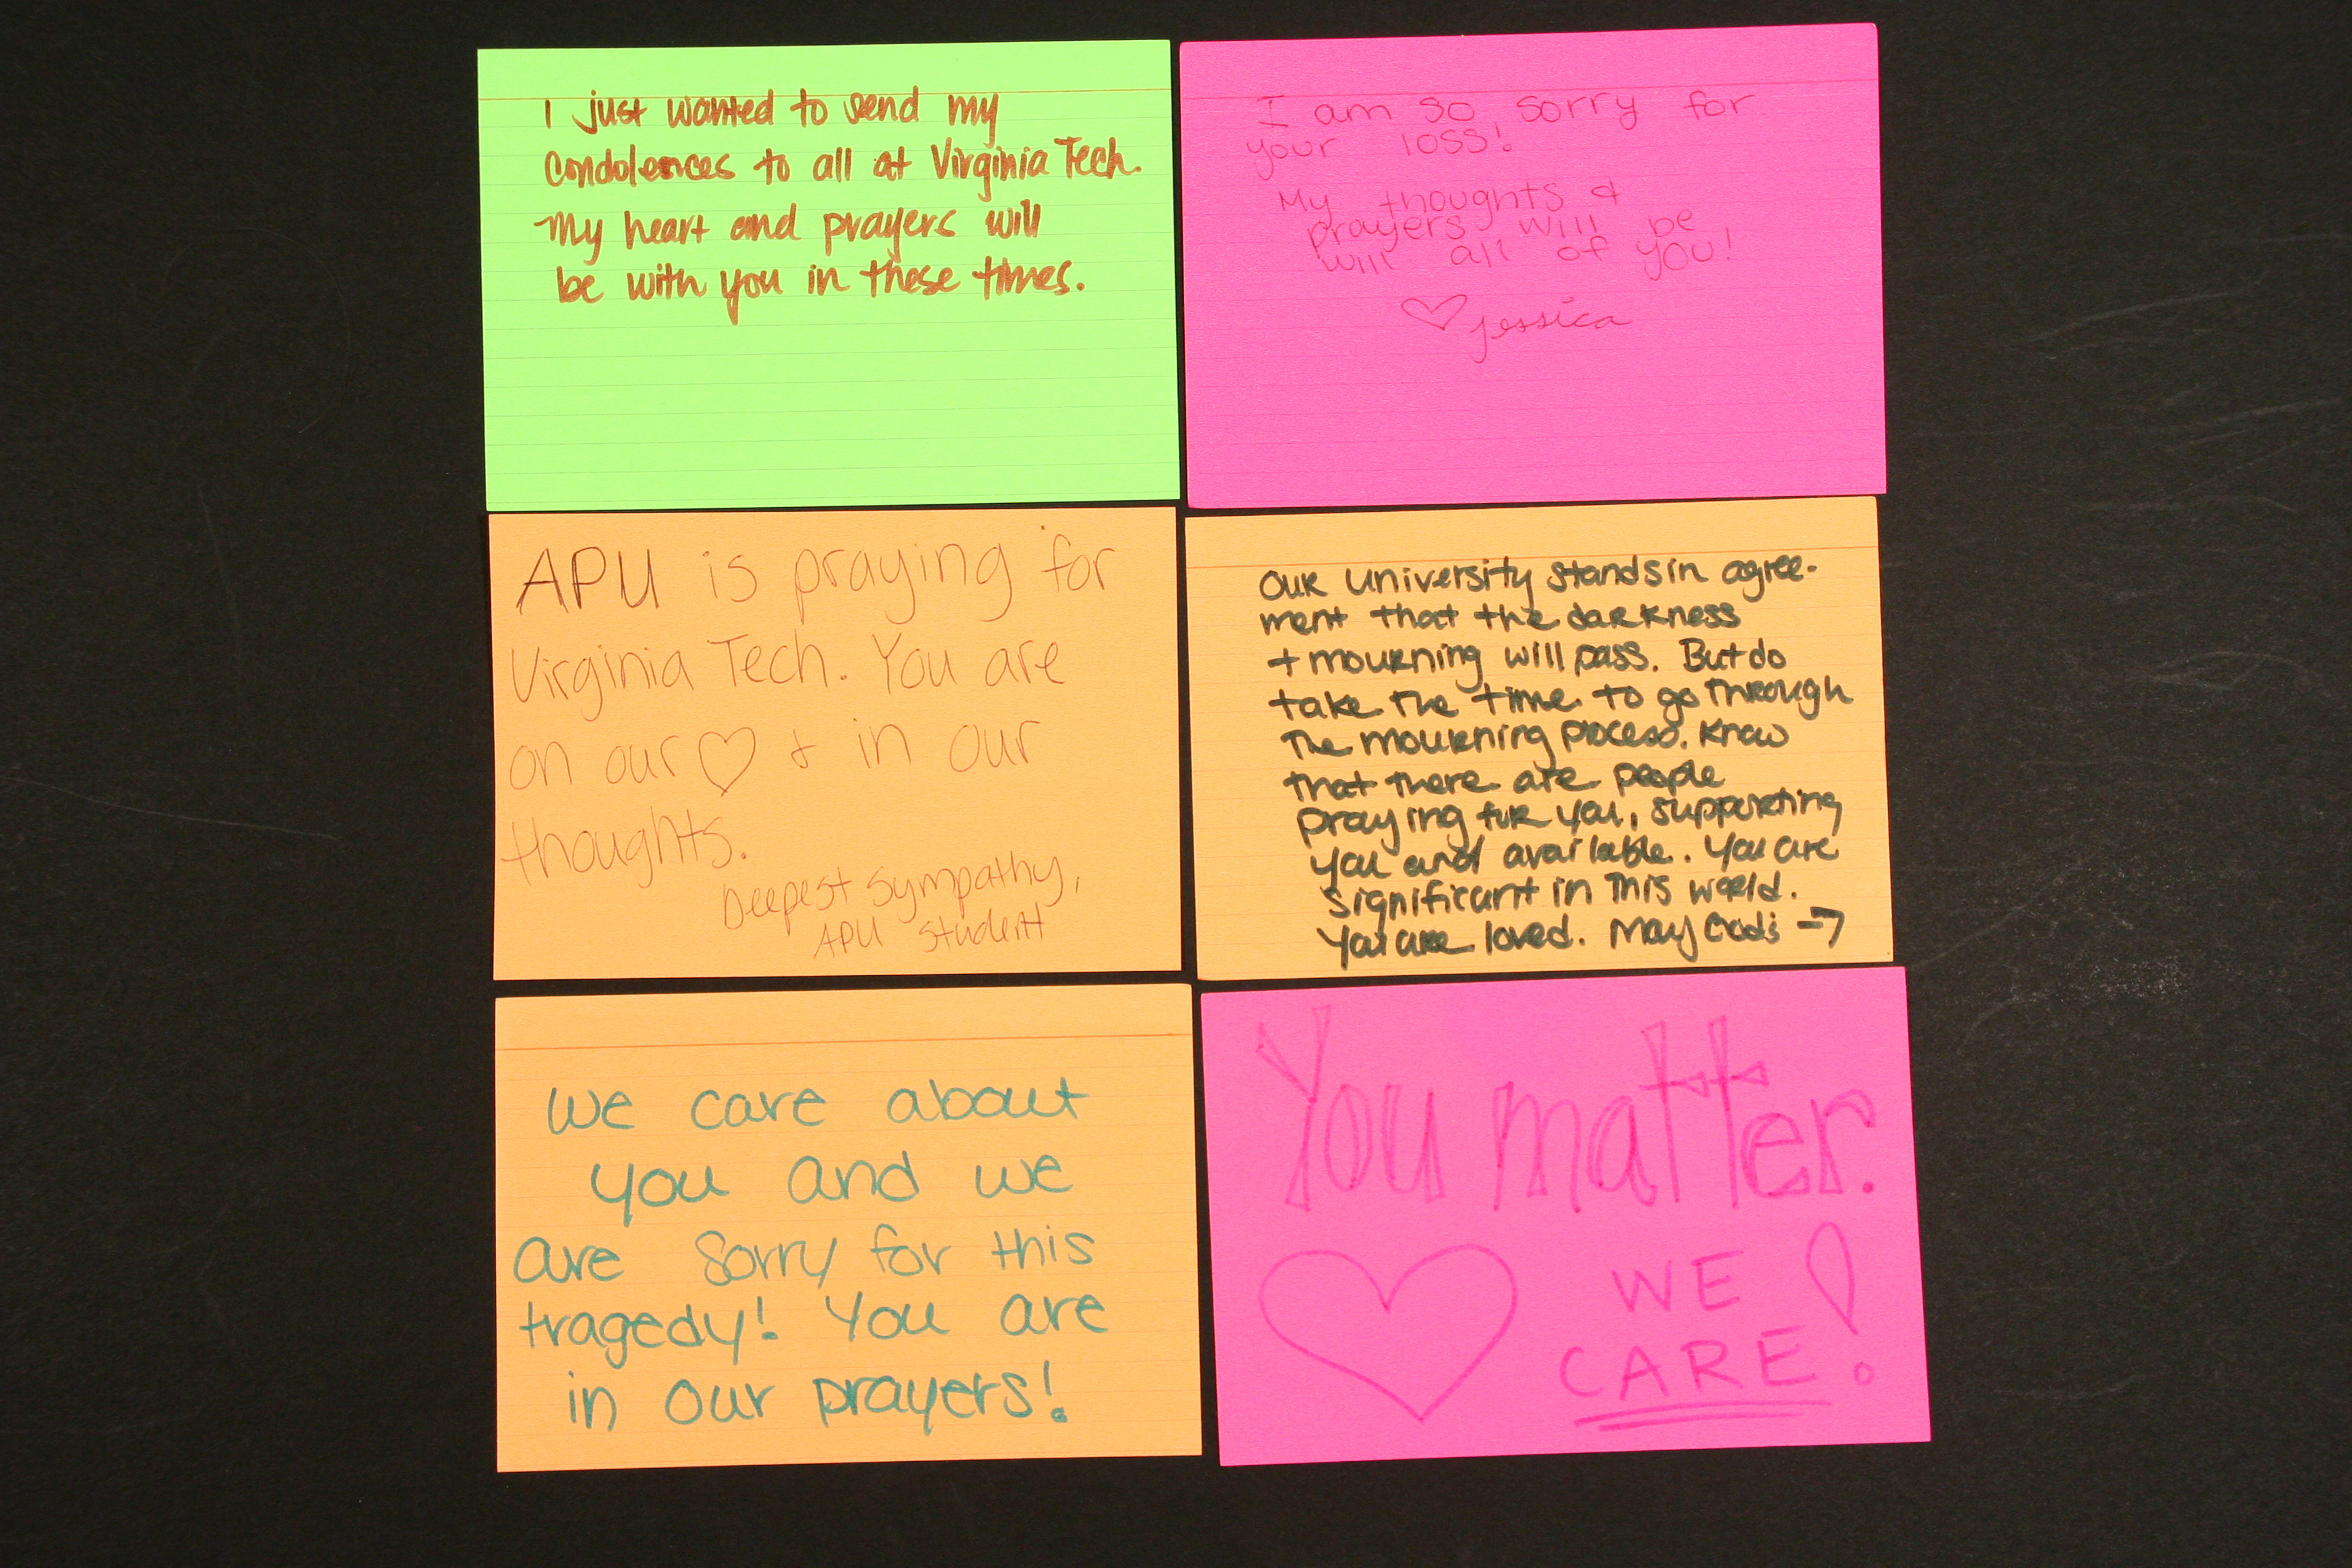 I just wanted to send my
condolences to all at Virginia Tech.
My heart and prayers will
be with you in these times.
I am so sorry for
your loss!
My thoughts &
prayers will be
will all of you!
♡ Jessica
APU is praying for
Virginia Tech. You are
on our ♡ & in our
thoughts.
Deepest sympathy,
APU student
Our University stands in agree-
ment that the darkness
+ mourning will pass. But do
take the time to go through
the mourning process. Know
that there are people
praying for you, supporting
you and available. You are
significant in this world.
You are loved. May God's →
We care about
you and we
are sorry for this
tragedy! You are
in our prayers!
You matter.
♡ WE
CARE!